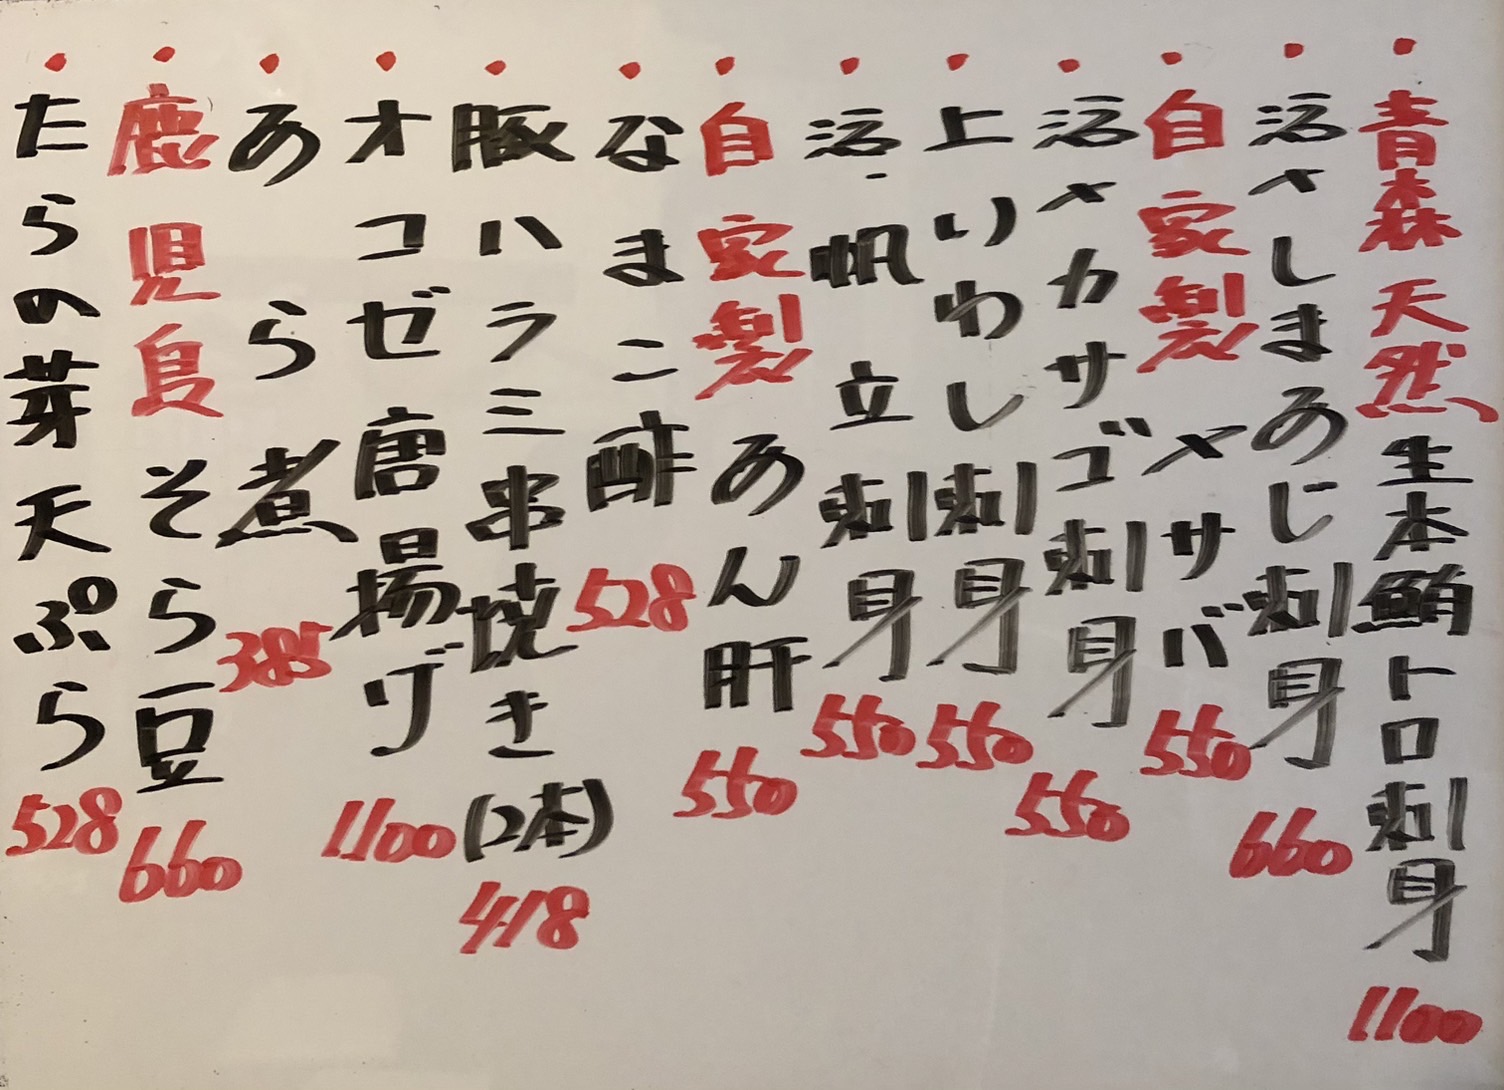 ・青森天然生本鮪トロ刺身 1100
・活〆しまあじ刺身 660
・自家製〆サバ 550
・活〆カサゴ刺身 550
・上いわし刺身 550
・活・帆立刺身 550
・自家製あん肝 550
・なまこ酢 528
・豚ハラミ串焼き(2本) 418
・オコゼ唐揚げ 1100
・あら煮 385
・鹿児島そら豆 660
・たらの芽天ぷら 528